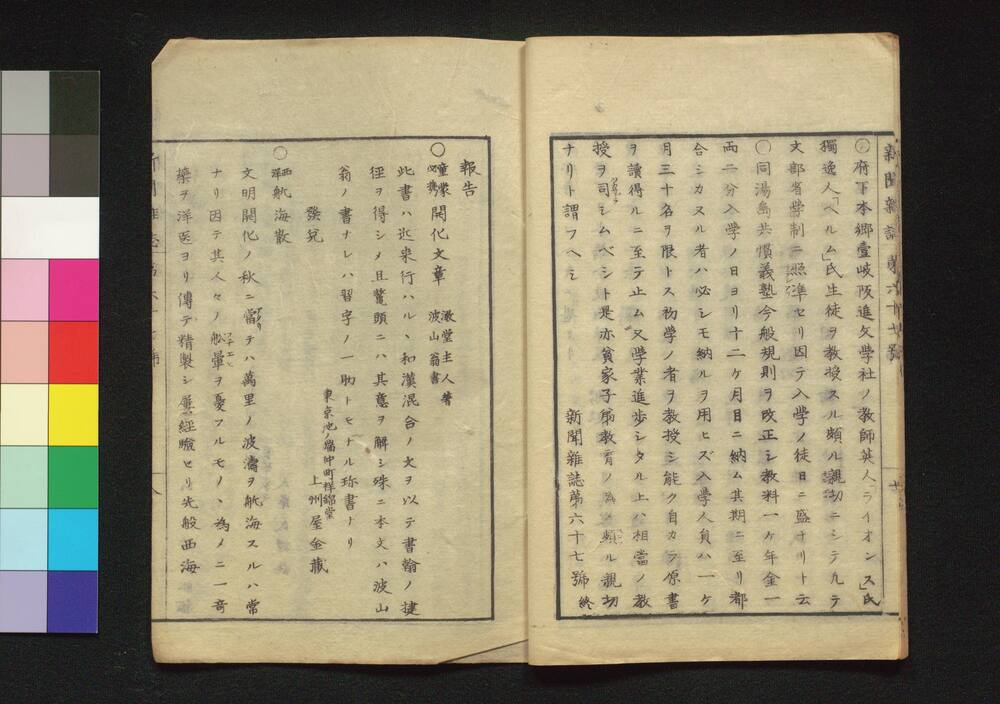 新聞雜誌第六十七號
〇府下本郷壹岐阪進文學社ノ教師英人「ライオンス」氏
獨逸人「ヘルム」氏生徒ヲ教授スル頗ル親切ニシテ凡テ
文部省学制ニ照準セリ因テ入學ノ徒日ニ盛ナリト云
〇同湯島共慣義塾今般規則ヲ改正シ教料一ケ年金一
両二分入学ノ日ヨリ十二ケ月目ニ納ム其期ニ至リ都
合シカスル者ハ必シモ納ルヲ用ヒズ入学人負ハ一ケ
月三十名ヲ限トス初学ノ者ヲ教授シ能ク自カラ原書
ヲ讀得ルニ至テ止ム又学業進歩シタル上ハ相當ノ教
授ヲ司シムベシト是亦貧家子弟教育ノ為メ頗ル親切
ナリト謂フヘシ
新聞雜誌第六十七號終
報告
〇童蒙必携開化文章 激堂主人著 波山翁書
此書ハ近来行ハルヽ和漢混合ノ文ヲ以テ書翰ノ捷
徑ヲ得シメ且鼇頭ニハ其意ヲ解シ殊ニ本文ハ波山
翁ノ書ナレハ習字ノ一助トモナル珎書ナリ
東京池ノ端仲町祥錦堂
發兌 上州屋金藏
〇西洋航海散
文明開化ノ秋ニ當テハ萬里ノ波濤ヲ航海スルハ常
ナリ因テ其人々ノ舩暈ヲ憂フルモノヽ為メニ一奇
藥ヲ洋医ヨリ傳テ精製シ屢経驗セリ先般西海